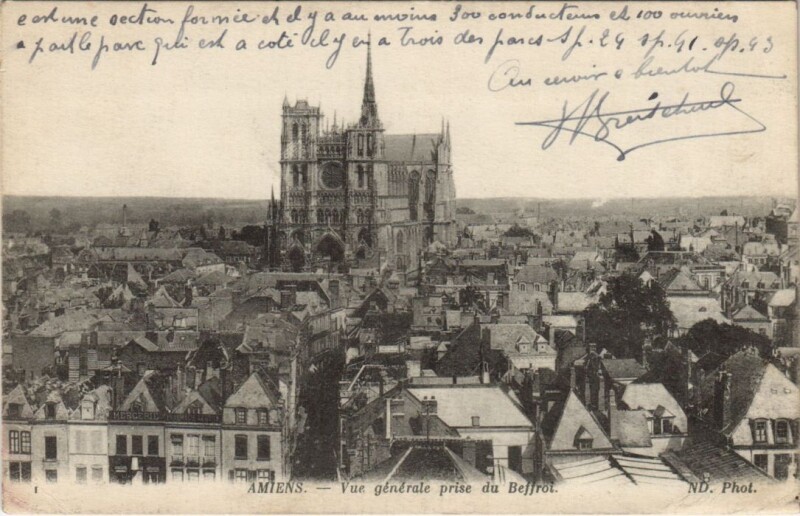 est une section formée et il y a au moins 300 conducteurs et 100 ouvriers
a part le parc qui est a coté il y en a trois des parcs Sp. 24 Sp. 41. Sp. 43
Au revoir a bientot
MERCERIE
1 AMIENS. — Vue générale prise du Beffroi. ND. Phot.